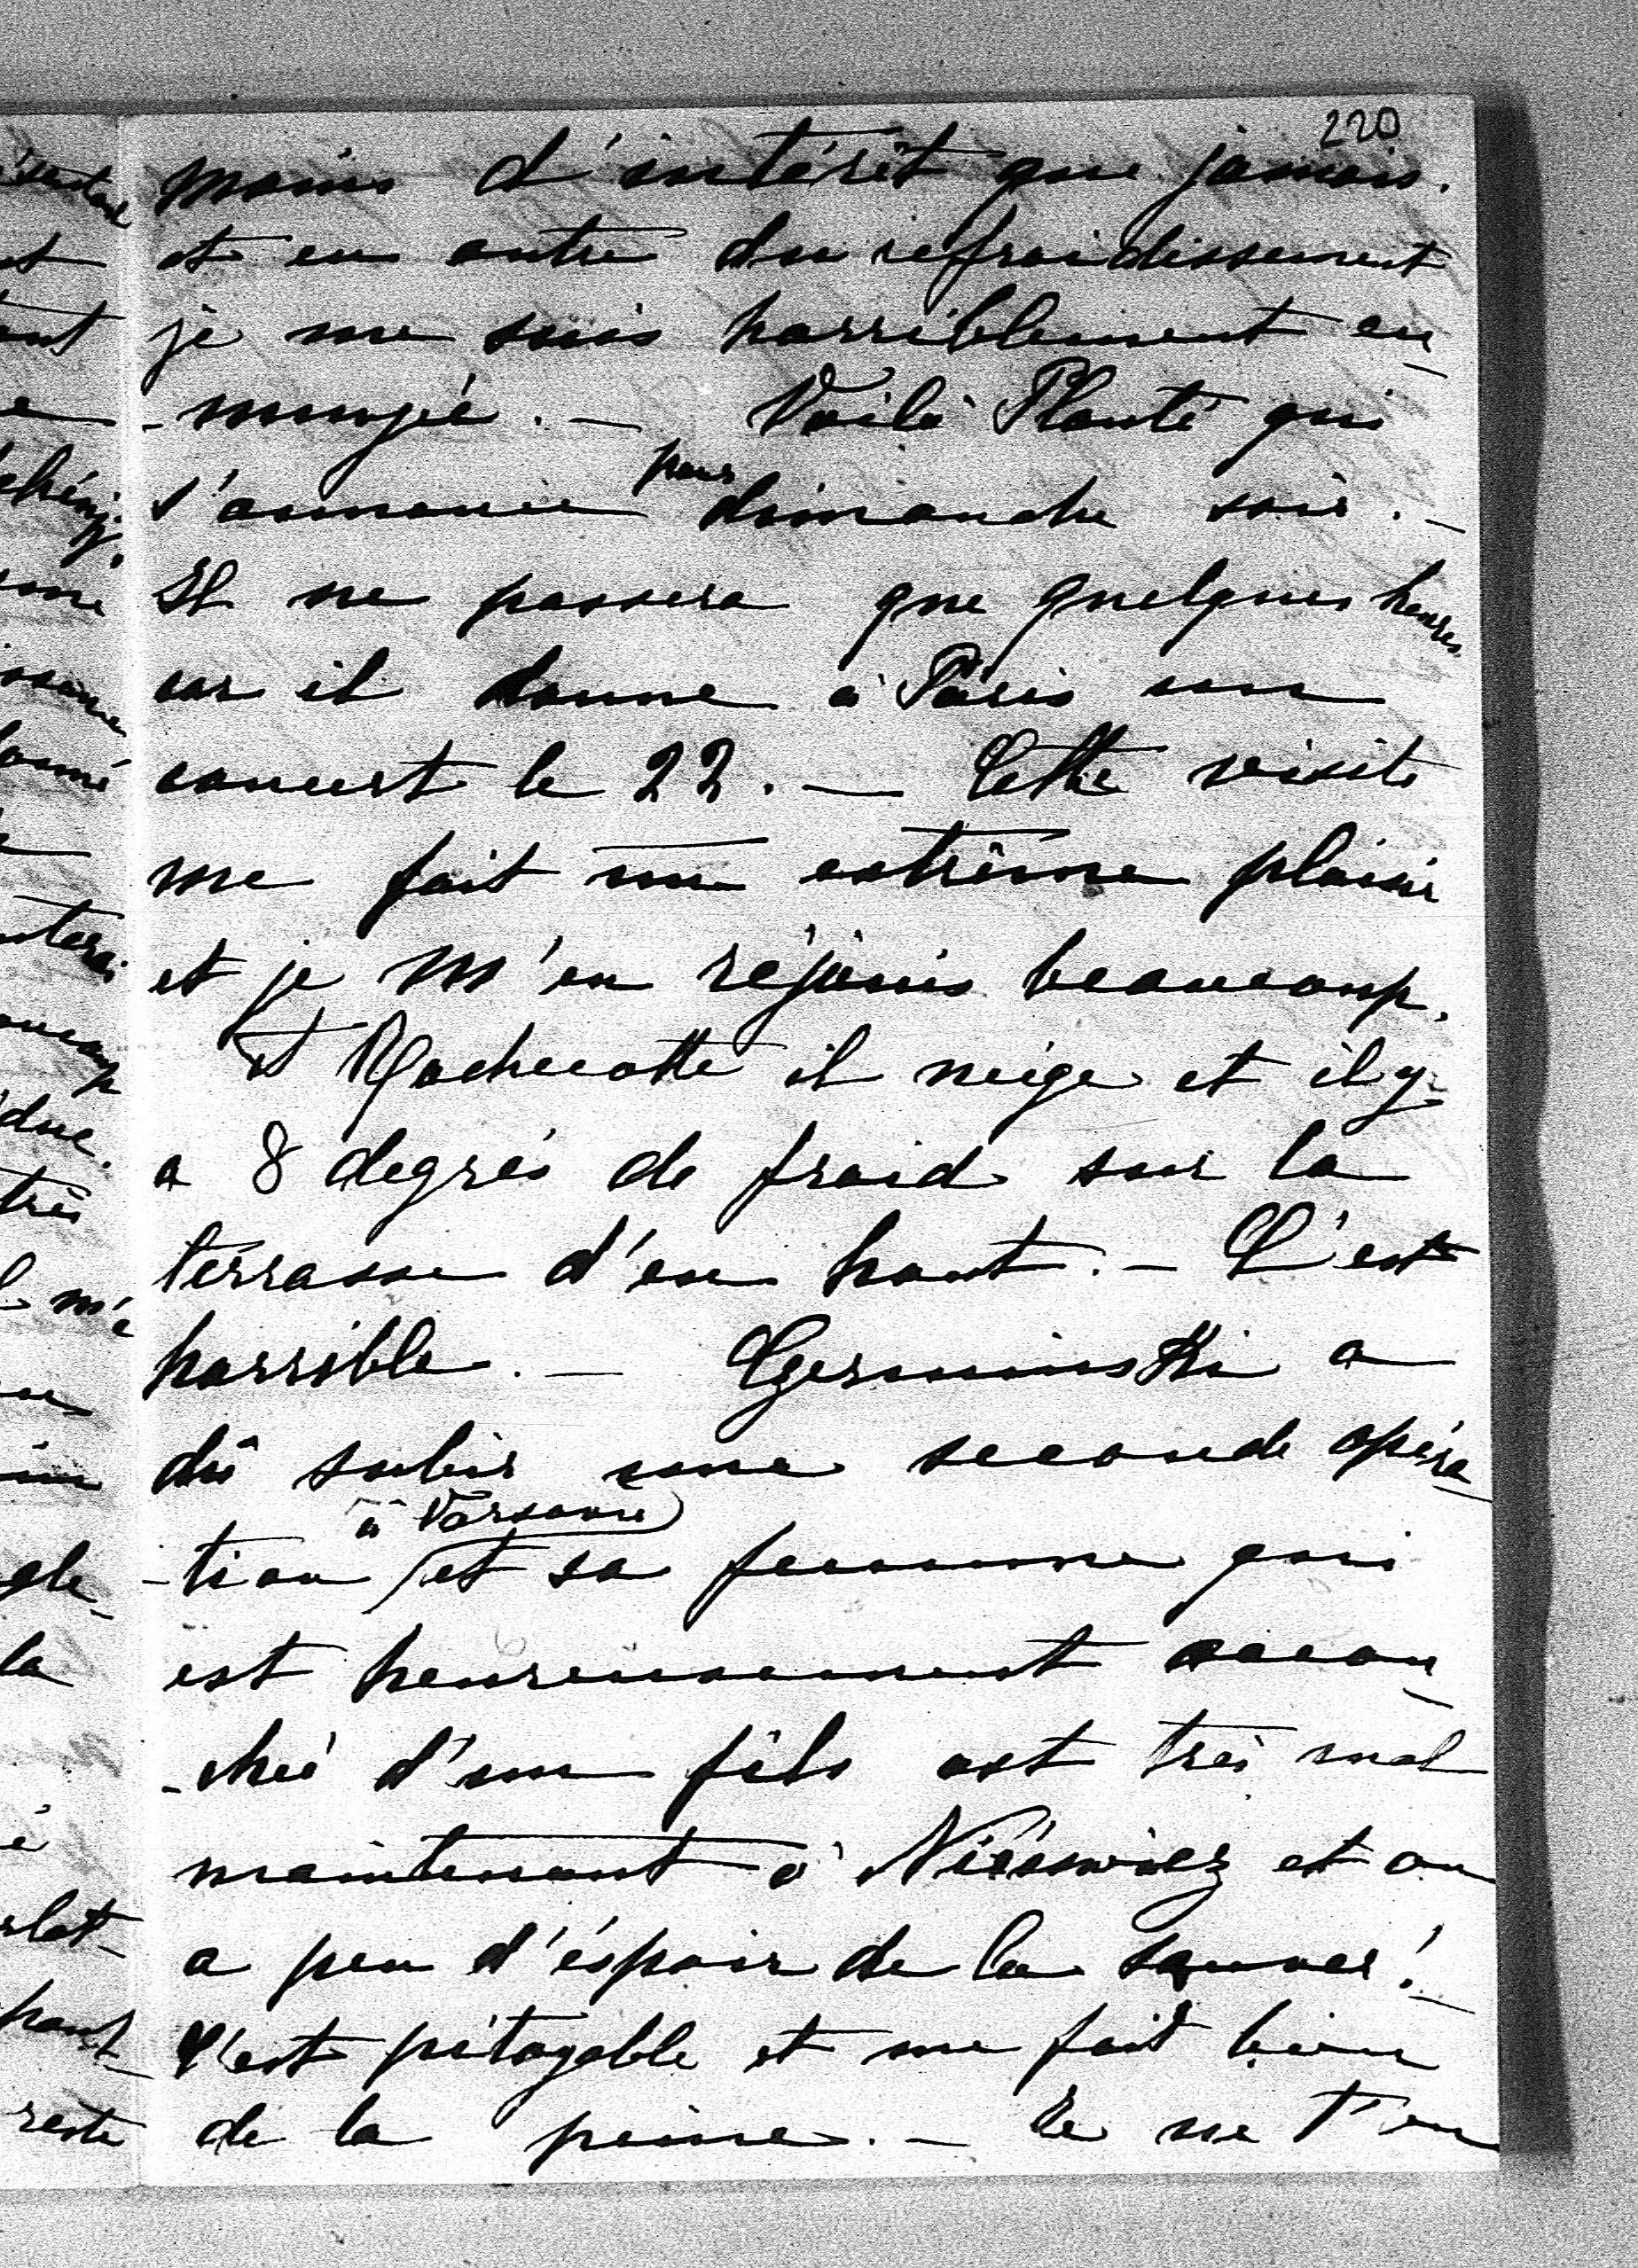 220
moins d'intérêt que jamais.
et en outre du refroidissement
je me suis horriblement en
-nuyée. — Voilà Planté qui
s'annonce pour dimanche soir. —
Il ne passera que quelques heures
car il donne à Paris un
concert le 22. — Cette visite
me fait un extrême plaisir
et je m'en réjouis beaucoup.
A Rochecotte il neige et il y
a 8 degrés de froid sur la
terrasse d'en haut. — C'est
horrible. — Czerminski a
dû subir une seconde opéra
-tion à Varsovie et sa femme qui
est heureusement accou
-chée d'un fils est très mal
maintenant à Niéswiez et on
a peu d'éspoir de la sauver! —
C'est pitoyable et me fait bien
de la peine. — Je ne t'en